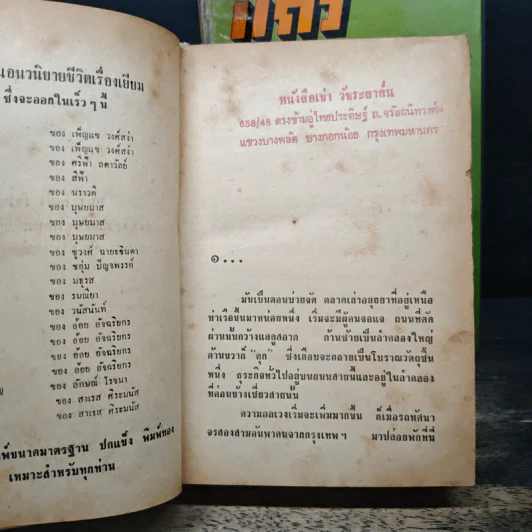 นอนวนิยายชีวิตเรื่องเยี่ยม
ซึ่งจะออกในเร็ว ๆ นี้
ของ เพ็ญแข วงศ์สง่า
ของ เพ็ญแข วงศ์สง่า
ของ ศรีฟ้า ลดาวัลย์
ของ สีฟ้า
ของ นราวดี
ของ บุษยมาส
ของ บุษยมาส
ของ บุษยมาส
ของ ชูวงศ์ ฉายะจินดา
ของ ชอุ่ม ปัญจพรรค์
ของ มธุรส
ของ รมณียา
ของ วนัสนันท์
ของ อ้อย อัจฉริยกร
ของ อ้อย อัจฉริยกร
ของ อ้อย อัจฉริยกร
ของ อ้อย อัจฉริยกร
ของ ลักษณ์ โรจนา
ของ สาเรส ศิระมนัส
ของ สาเรส ศิระมนัส
พ์ขนาดมาตรฐาน ปกแข็ง พิมพ์ทอง
เหมาะสำหรับทุกท่าน
หนังสือเช่า วัชระสาส์น
658/48 ตรงข้ามอู่ไทยประดิษฐ์ ถ. จรัลสนิทวงศ์
แขวงบางพลัด บางกอกน้อย กรุงเทพมหานคร
๑...
มันเป็นตอนบ่ายจัด ตลาดเก่าอยุธยาที่อยู่เหนือ
ท่าเรือขึ้นมาหน่อยหนึ่ง เริ่มจะมีผู้คนจอแจ ถนนที่ตัด
ผ่านนั้นกว้างแลดูสอาด ด้านซ้ายเป็นลำคลองใหญ่
ด้านขวาล์ "คุก" ซึ่งเกือบจะกลายเป็นโบราณวัตถุชิ้น
หนึ่ง ธุระกิจทั่วไปอยู่บนถนนสายนี้และอยู่ในลำคลอง
ที่ค่อนข้างเชี่ยวสายนั้น
ความอลเวงเริ่มจะเพิ่มมากขึ้น ก็เมื่อรถทัศนา
จรสองสามคันพาคนจากกรุงเทพ ฯ มาปล่อยพักที่นี่